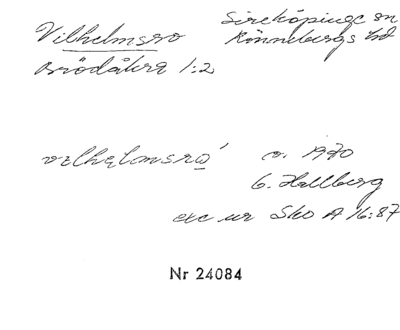 Vilhelmsro Sireköpinge sn
Brödåkra 1:2 Rönnebergs hd
vɩlhęlmsrọ́ o. 1970
G. Hallberg
exc ur Sko A 16:87
Nr 24084